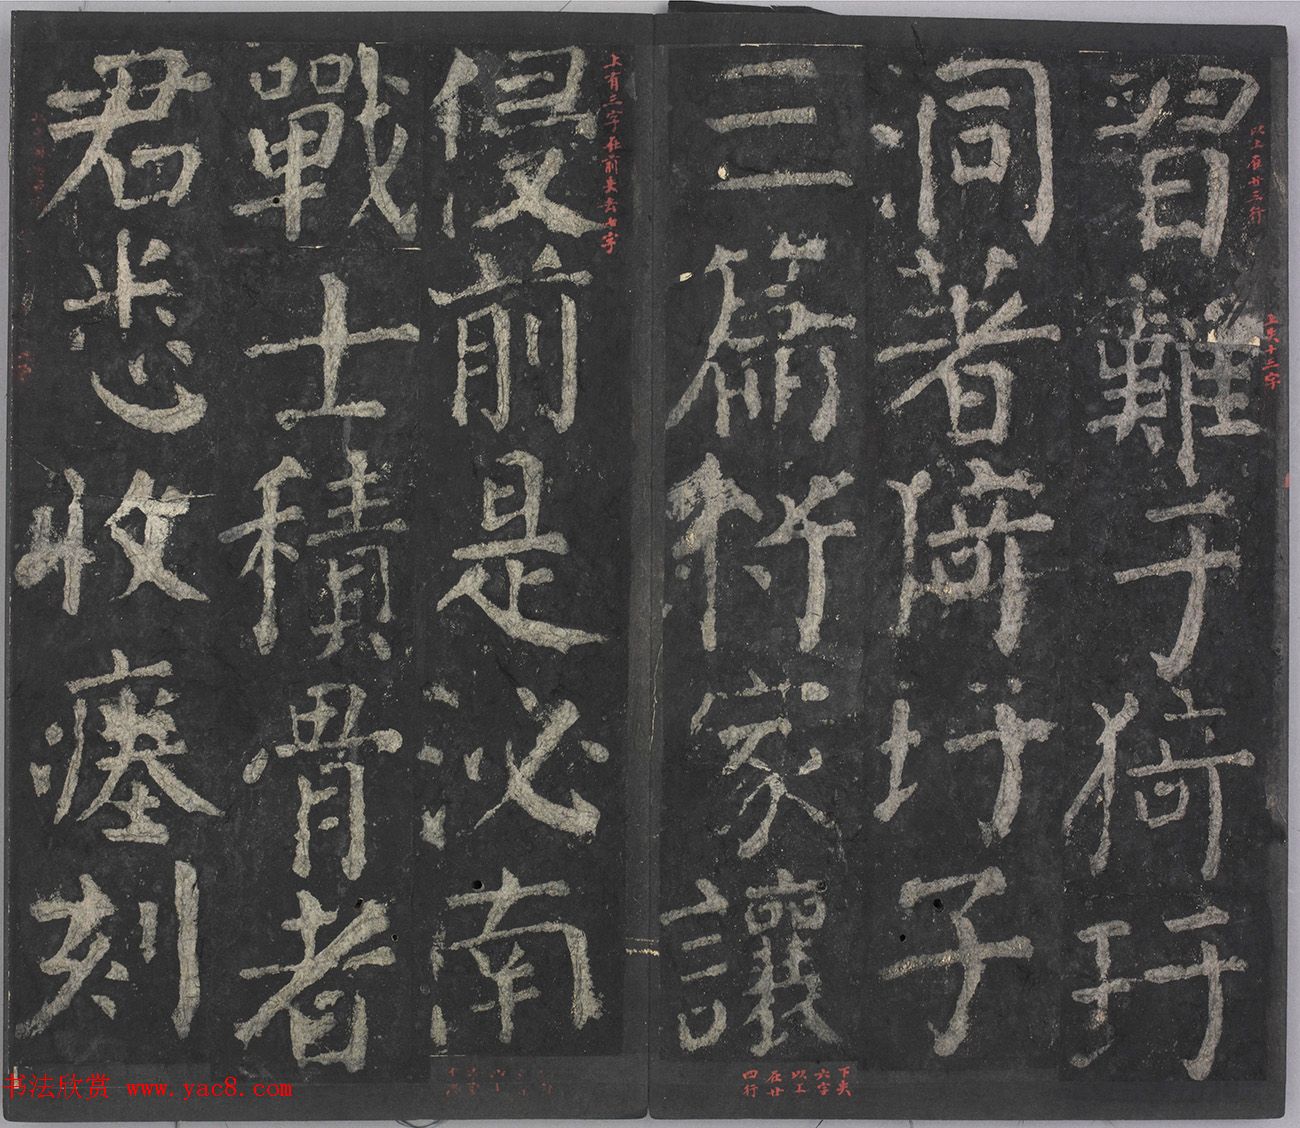 習難于猗玗
洞著猗玗子
三篇將家讓
侵前是泌南
戰士積骨者
君悉收瘞刻
以上在廿三行
上失十三字
下失六字以上在廿四行
上有三字在前失去七字
书法欣赏 www.yac8.com